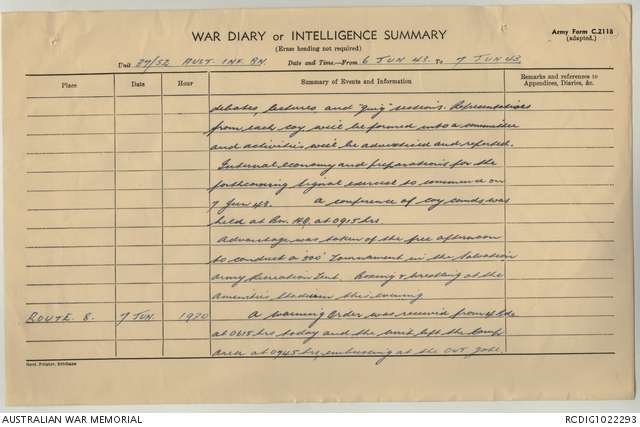 WAR DIARY or INTELLIGENCE SUMMARY
Army Form C.2118
(adapted.)
(Erase heading not required)
Unit 37/52 AUST. INF. BN. Date and Time—From 6 JUN 43 To 7 JUN 43
Place Date Hour Summary of Events and Information Remarks and references to Appendices, Diaries, &c.
debates, lectures, and "Quiz" sessions. Representatives
from each coy will be formed into a committee
and activities will be advertised and refereed.
Internal economy and preparations for the
forthcoming Signal exercise to commence on
7 Jun 43. A conference of coy comds was
held at Bn. HQ at 0915 hrs
Advantage was taken of the free afternoon
to conduct a '500' Tournament in the Salvation
Army Recreation Tent. Boxing & wrestling at the
Amenities Stadium this evening
ROUTE 8. 7 JUN. 1920 A warning Order was received from 4 Bde
at 0615 hrs today and the unit left the Camp
area at 0945 hrs, embussing at the
Govt. Printer, Brisbane
AUSTRALIAN WAR MEMORIAL
RCDIG1022293